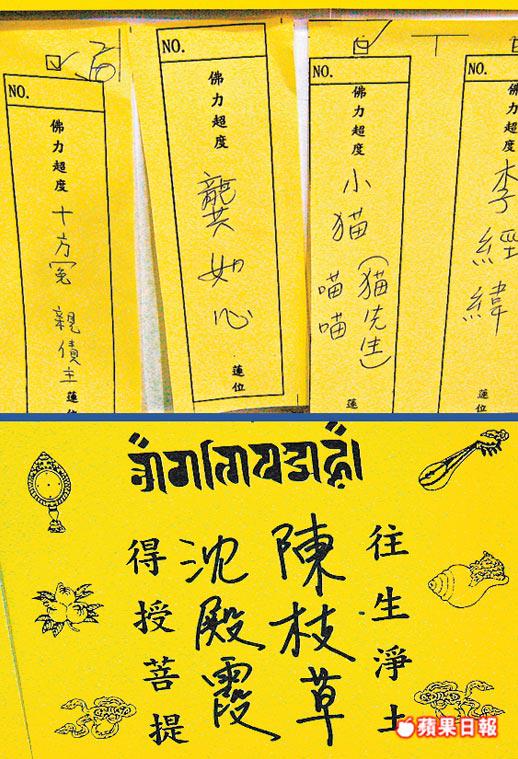 NO.
佛力超度
十方冤親債主
蓮位
NO.
佛力超度
龔如心
蓮位
NO.
佛力超度
小猫
(猫先生)
喵喵
蓮
NO.
佛力超度
李經緯
蓮
往生淨土
陳枝草
沈殿霞
得授菩提
蘋果日報